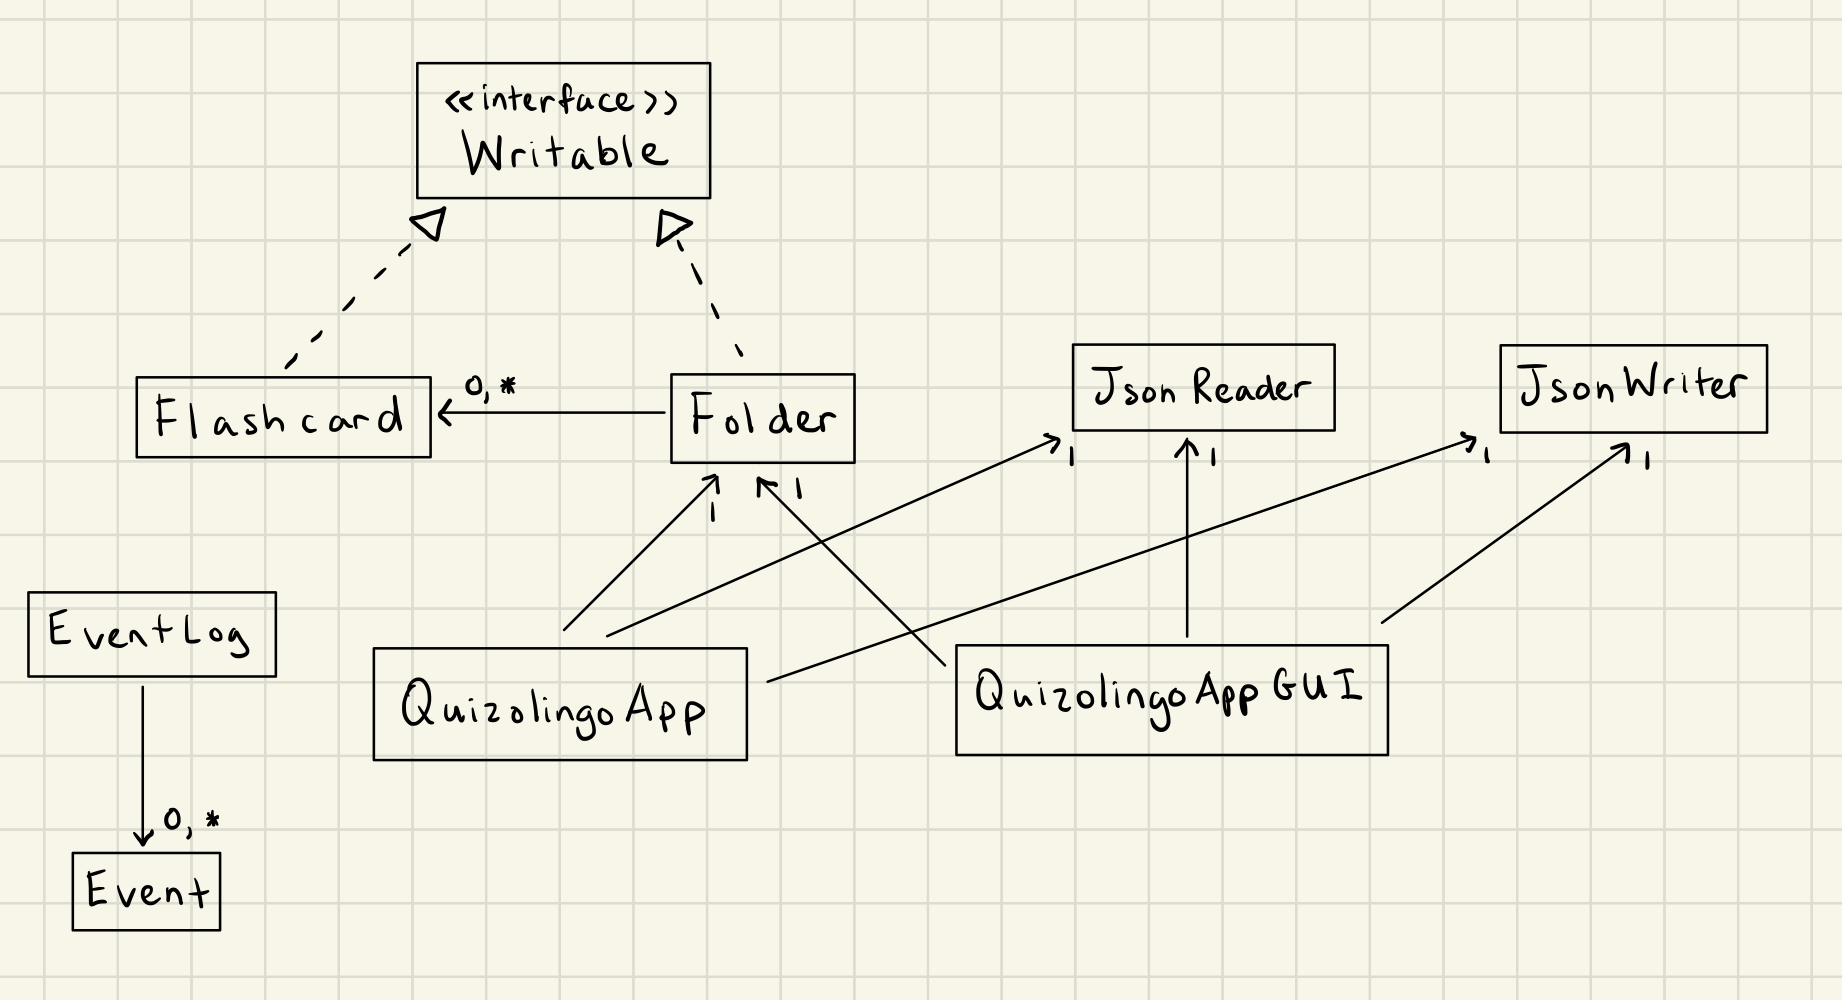 <<interface>>
Writable
Flashcard
0,*
Folder
Json Reader
JsonWriter
1
1
1
1
1
1
EventLog
QuizolingoApp
QuizolingoAppGUI
0,*
Event